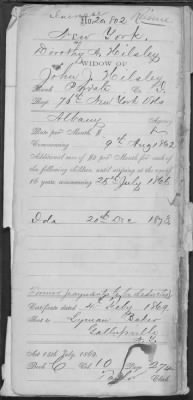 Increase
No. 20,802
New York.
Dorothy A. Hilsley
WIDOW OF
John J. Hilsley
Rank Private Co.
Reg. 76th New York Vols
Albany Agency
Rate per Month, 8
Commencing 9th Aug 1862
Additional sum of $2 per Month for each of
the following children, until arriving at the age of
16 years, commencing 25th July 1866
Ida 20th Dec 1873
Former payments to be deducted
Certificate dated 4 July 1869
Sent to Lyman
Gallupville
N.Y.
Act 14th July 1862.
Book C Vol. 10 Page 272
Clerk